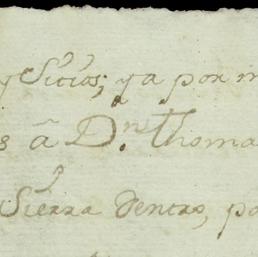 y Sicios; ya por m
s â D.ⁿ Thoma
Sierra dentro, po